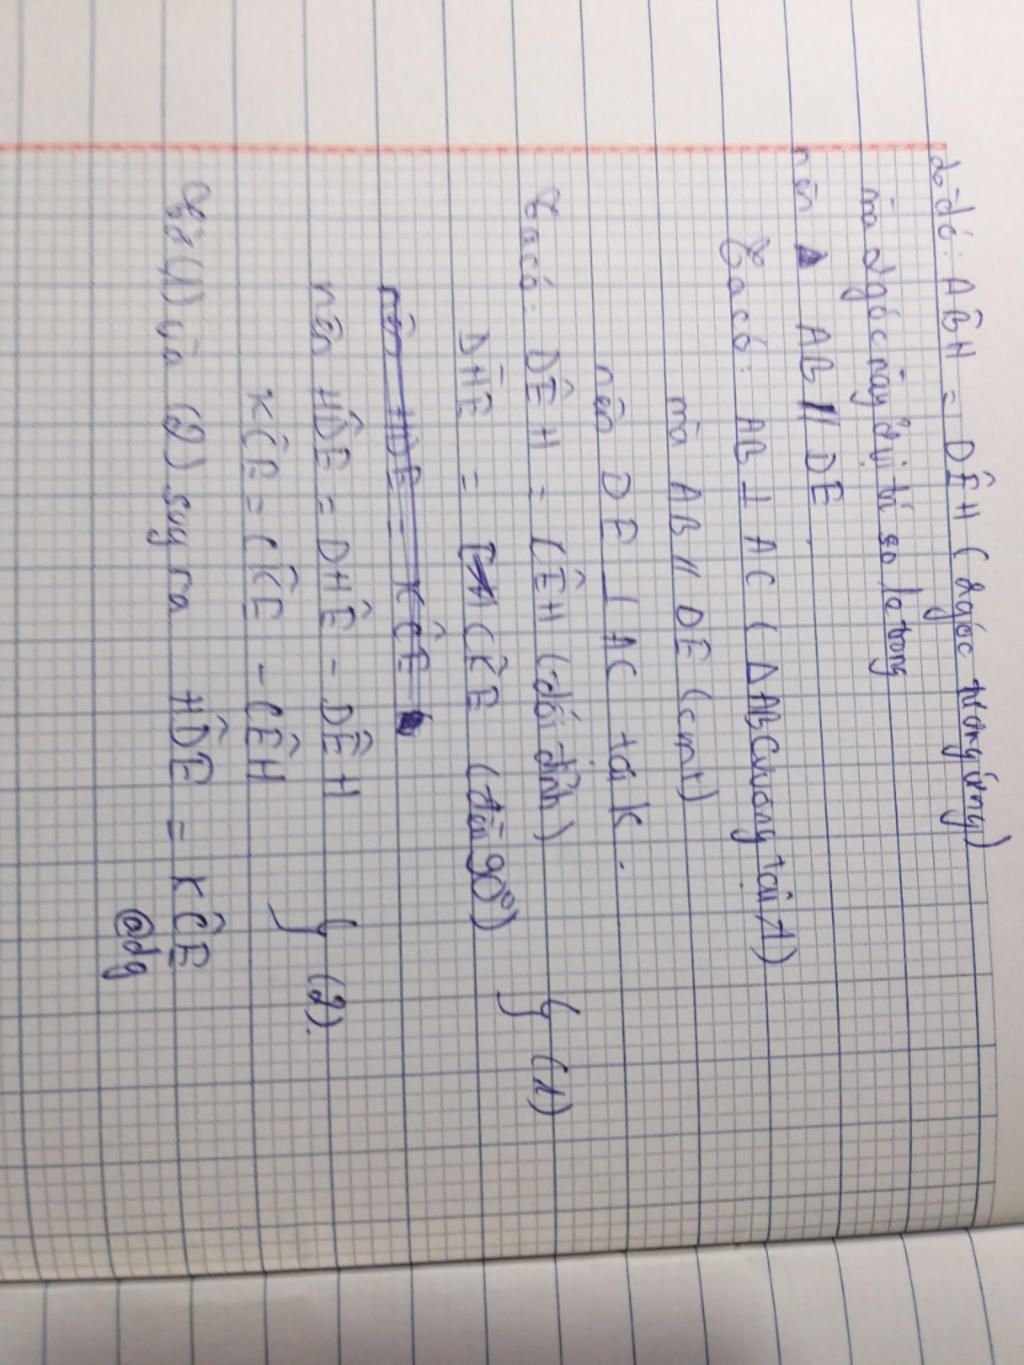 do đó: AB̂H = DÊH (2 góc tương ứng)
mà 2 góc này ở vị trí so le trong
nên AB // DE.
Ta có: AB ⊥ AC (ΔABC vuông tại A)
mà AB // DE (cmt)
nên DE ⊥ AC tại K.
Ta có: DÊH = CÊH (đối đỉnh)
DĤE = CK̂E (đều 90°) } (1)
nên HD̂E = KĈE
nên HD̂E = DĤE - DÊH
KĈE = CK̂E - CÊH } (2).
Từ (1) và (2) suy ra HD̂E = KĈE
@dg